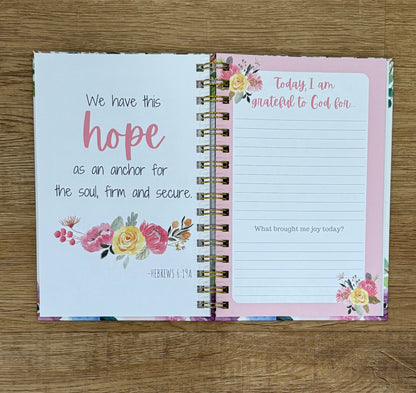 We have this
hope
as an anchor for
the soul, firm and secure.
-HEBREWS 6:19A
Today, I am
grateful to God for...
What brought me joy today?